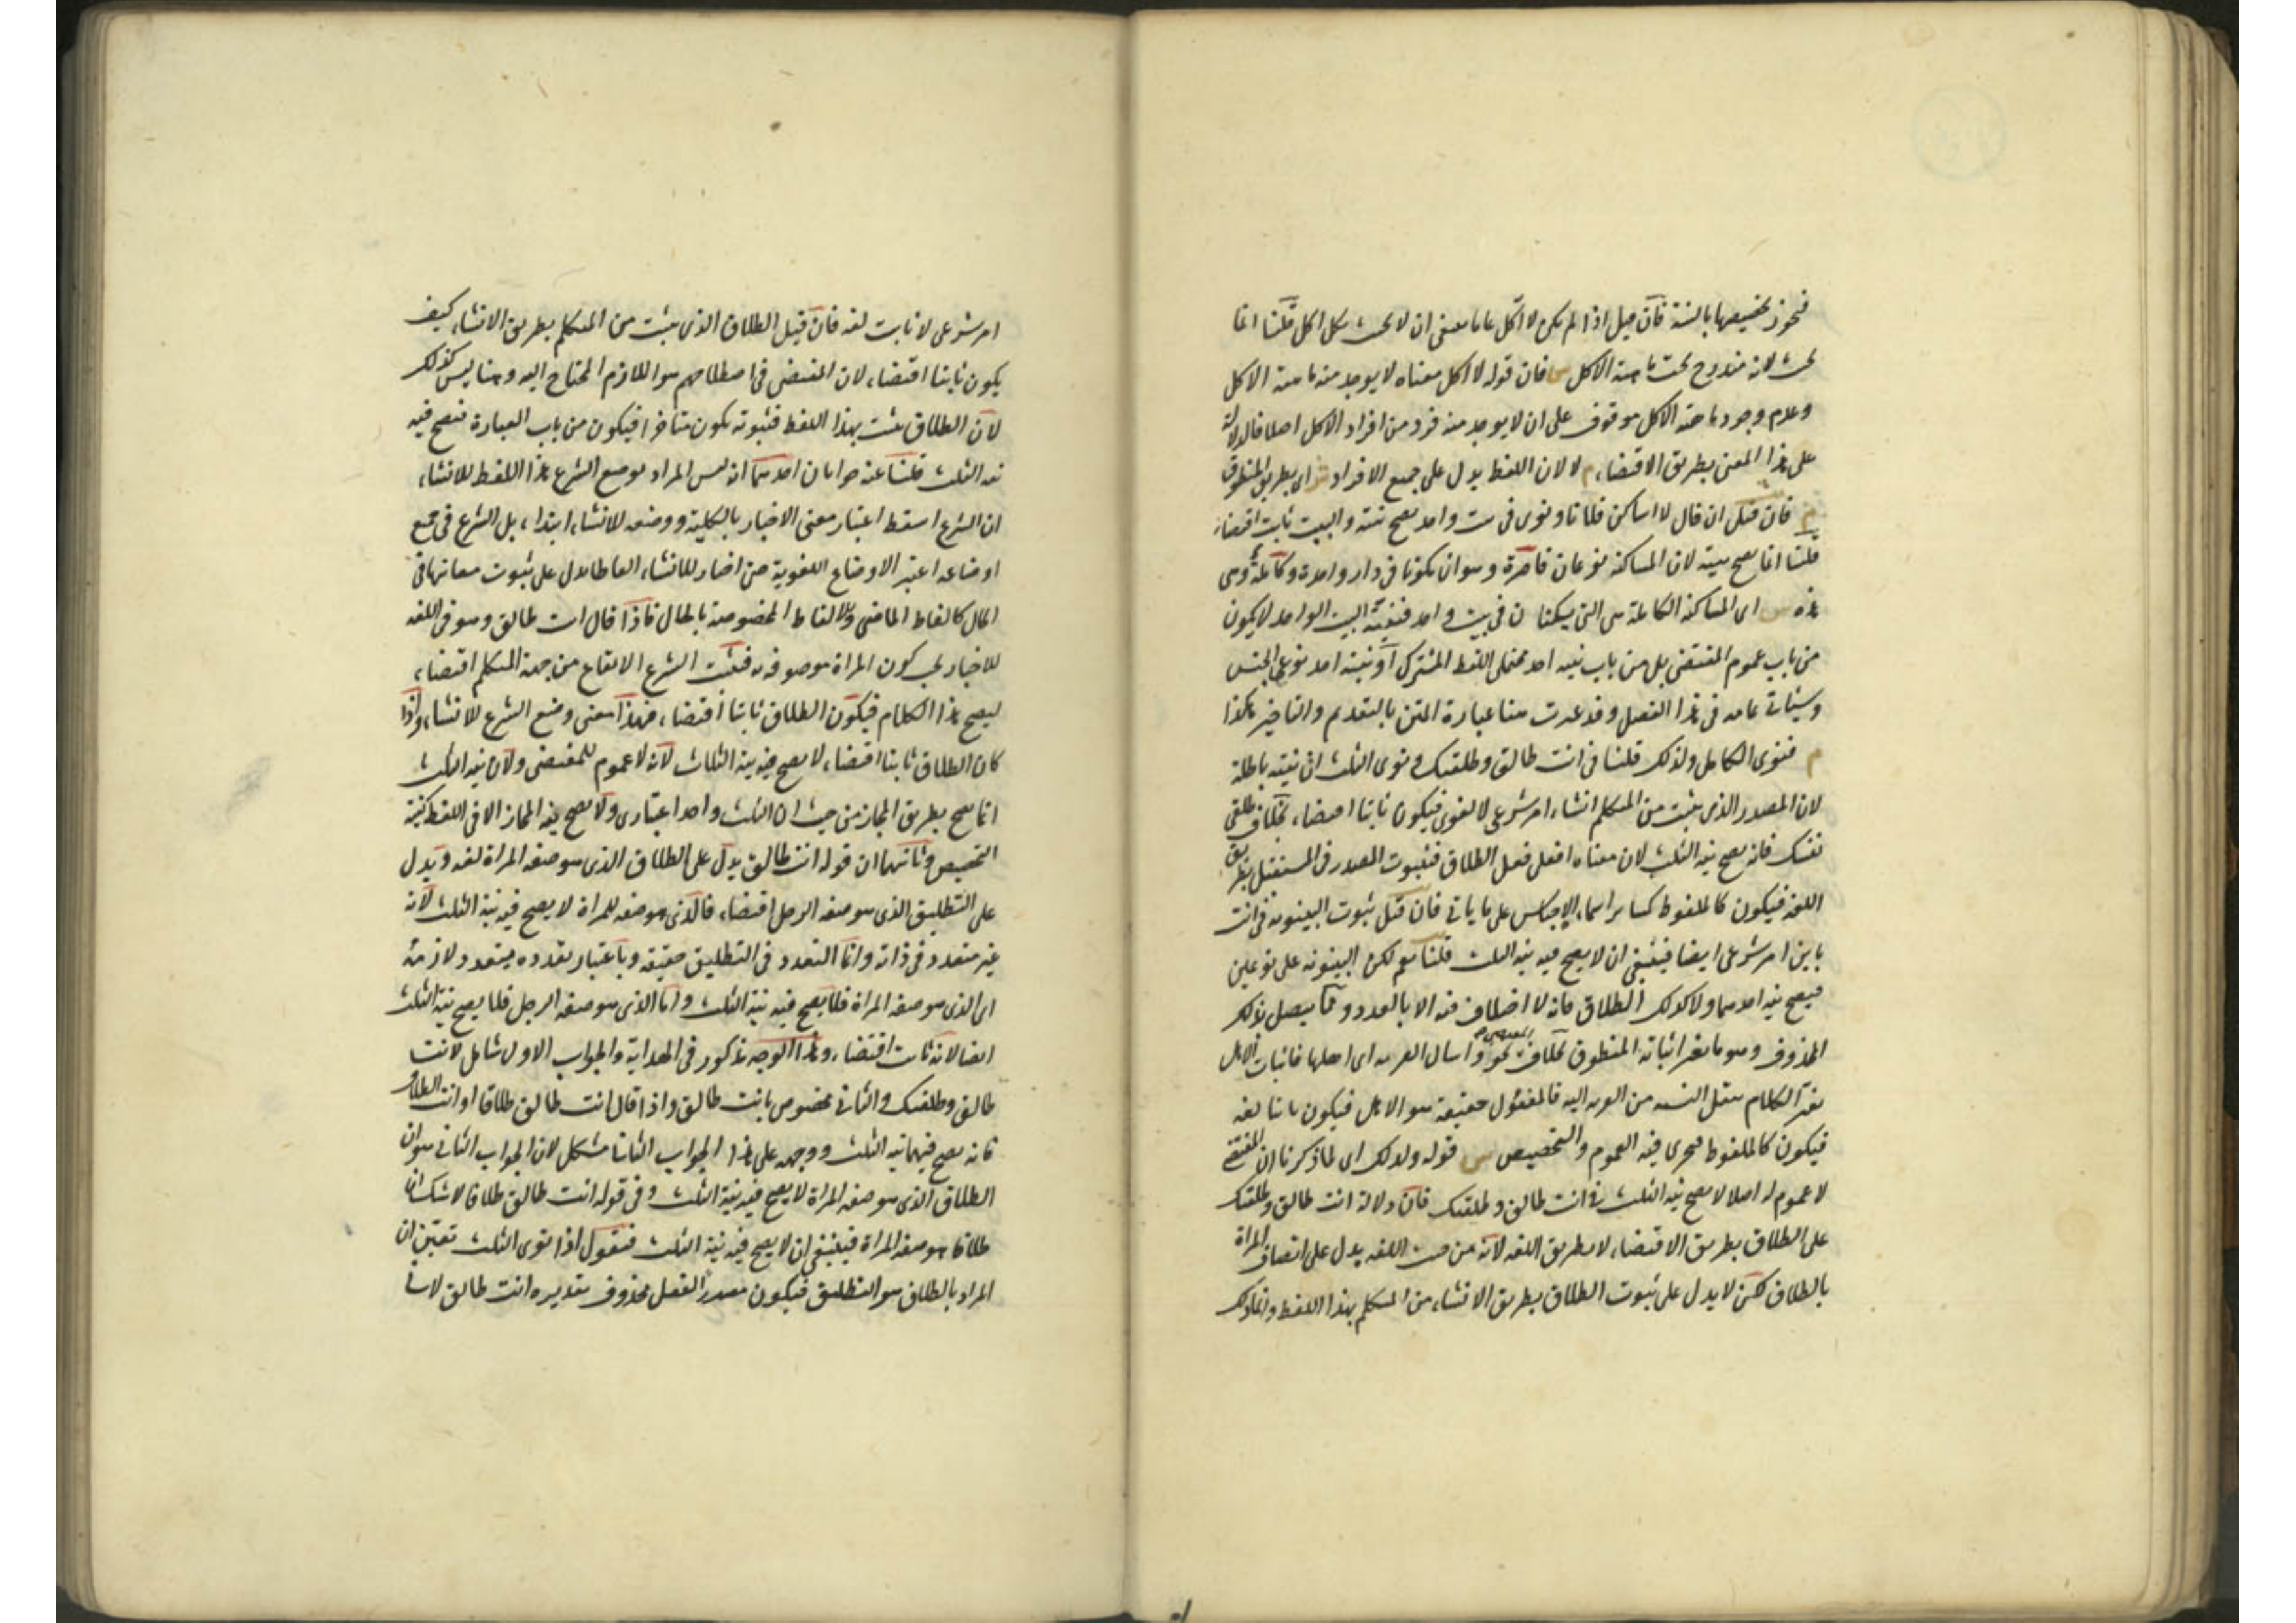 فيجوز تخصيصها بالنية فان قيل اذا لم يكن لا اكل عاما ينبغى ان لا يحنث بكل اكل قلنا انما
يحنث لانه مندرج تحت ماهية الاكل ش فان قوله لا اكل معناه لا يوجد منه ماهية الاكل
وعدم وجود ماهية الاكل موقوف على ان لا يوجد منه فرد من افراد الاكل اصلا فالدلالة
على هذا المعنى بطريق الاقتضاء م لا لان اللفظ يدل على جميع الافراد ش اى بطريق المنطوق
م فان قيل ان قال لا اساكن فلانا ونوى فى بيت واحد يصح نيته والبيت ثابت اقتضاء
قلنا انما يصح نيته لان المساكنة نوعان قاصرة وهو ان يكونا فى دار واحدة وكاملة وهى
هذه ش اى المساكنة الكاملة هى التى يسكنا ن فى بيت واحد فنية البيت الواحد لا يكون
من باب عموم المقتضى بل من باب نية احد محتملى اللفظ المشترك او نية احد نوعى الجنس
وسياتى تمامه فى هذا الفصل وقد غيرت هنا عبارة المتن بالتقديم والتاخير هكذا
م فنوى الكامل ولذلك قلنا فى انت طالق وطلقتك ونوى الثلث ان نيته باطلة
لان المصدر الذى يثبت من المتكلم انشاء امر شرعى لا لغوى فيكون ثابتا اقتضاء بخلاف طلقى
نفسك فانه يصح نية الثلث لان معناه افعلى فعل الطلاق فثبوت المصدر فى المستقبل بطريق
اللغة فيكون كالملفوظ كسائر اسماء الاجناس على ما ياتى فان قيل ثبوت البينونة فى انت
باين امر شرعى ايضا فينبغى ان لا يصح فيه نية الثلث قلنا نعم لكن البينونة على نوعين
فيصح نية احدهما ولا كذلك الطلاق فانه لا اختلاف فيه الا بالعدد ومما يتصل بذلك
المحذوف وهو ما يغير اثباته المنطوق بخلاف المقتضى نحو واسال القرية اى اهلها فاثبات الاهل
يغير الكلام بنقل النسبة من القرية اليه فالمفعول حقيقة هو الاهل فيكون ثابتا لغة
فيكون كالملفوظ فيجرى فيه العموم والتخصيص ش قوله ولذلك اى لما ذكرنا ان المقتضى
لا عموم له اصلا لا يصح نية الثلث فى انت طالق وطلقتك فان دلالة انت طالق وطلقتك
على الطلاق بطريق الاقتضاء لا بطريق اللغة لانه من حيث اللغة يدل على اتصاف المراة
بالطلاق لكن لا يدل على ثبوت الطلاق بطريق الانشاء من المتكلم بهذا اللفظ وانما ذلك
امر شرعى لا ثابت لغة فان قيل الطلاق الذى يثبت من المتكلم بطريق الانشاء كيف
يكون ثابتا اقتضاء لان المقتضى فى اصطلاحهم هو اللازم المحتاج اليه وهنا ليس كذلك
لان الطلاق يثبت بهذا اللفظ فثبوته يكون متاخرا فيكون من باب العبارة فيصح فيه
نية الثلث قلنا عنه جوابان احدهما انه ليس المراد بوضع الشرع هذا اللفظ للانشاء
ان الشرع اسقط اعتبار معنى الاخبار بالكلية ووضعه للانشاء ابتداء بل الشرع فى جميع
اوضاعه اعتبر الاوضاع اللغوية حتى اختار للانشاء الفاظا تدل على ثبوت معانيها فى
الحال كالفاظ الماضى والالفاظ المخصوصة بالحال فاذا قال انت طالق وهو فى اللغة
للاخبار يجب كون المراة موصوفة به فيثبت الشرع الايقاع من جهة المتكلم اقتضاء
ليصح هذا الكلام فيكون الطلاق ثابتا اقتضاء فهذا معنى وضع الشرع للانشاء واذا
كان الطلاق ثابتا اقتضاء لا يصح فيه نية الثلاث لانه لا عموم للمقتضى ولان نية الثلث
انما يصح بطريق المجاز من حيث ان الثلث واحد اعتبارى ولا يصح نية المجاز الا فى اللفظ كنية
التخصيص وثانيهما ان قوله انت طالق يدل على الطلاق الذى هو صفة المراة لغة ويدل
على التطليق الذى هو صفة الرجل اقتضاء فالذى هو صفة للمراة لا يصح فيه نية الثلث لانه
غير متعدد فى ذاته وانما التعدد فى التطليق حقيقة وباعتبار تعدده يتعدد لازمه
اى الذى هو صفة المراة فلا يصح فيه نية الثلث واما الذى هو صفة الرجل فلا يصح نية الثلث
ايضا لانه ثابت اقتضاء وهذا الوجه مذكور فى الهداية والجواب الاول شامل لانت
طالق وطلقتك والثانى مخصوص بانت طالق واذا قال انت طالق طلاقا او انت الطلاق
فانه يصح فيهما نية الثلث ووجهه على هذا الجواب الثانى مشكل لان الجواب الثانى هو ان
الطلاق الذى هو صفة المراة لا يصح فيه نية الثلث وفى قوله انت طالق طلاقا لا شك ان
طلاقا هو صفة المراة فينبغى ان لا يصح فيه نية الثلث فنقول اذا نوى الثلث تعين ان
المراد بالطلاق هو التطليق فيكون مصدر الفعل محذوف تقديره انت طالق لانى